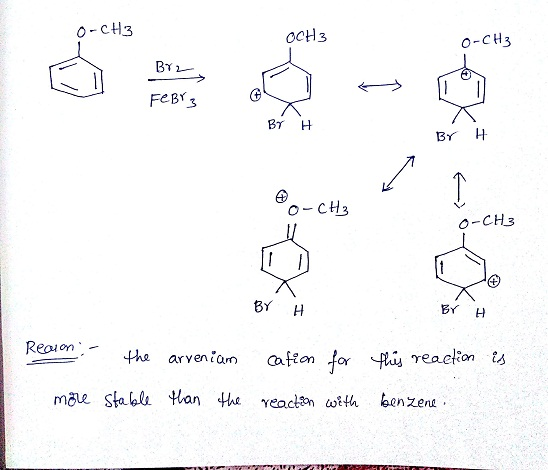 O-CH3
Br2
FeBr3
OCH3
⊕
Br H
O-CH3
⊕
Br H
⊕
O-CH3
Br H
O-CH3
⊕
Br H
Reason:- the arveniam cation for this reaction is
more stable than the reaction with benzene.